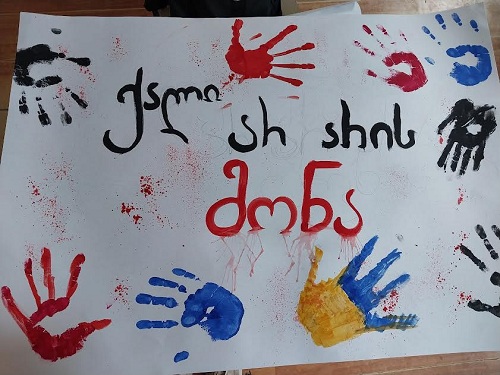 ქალი არ არის
მონა